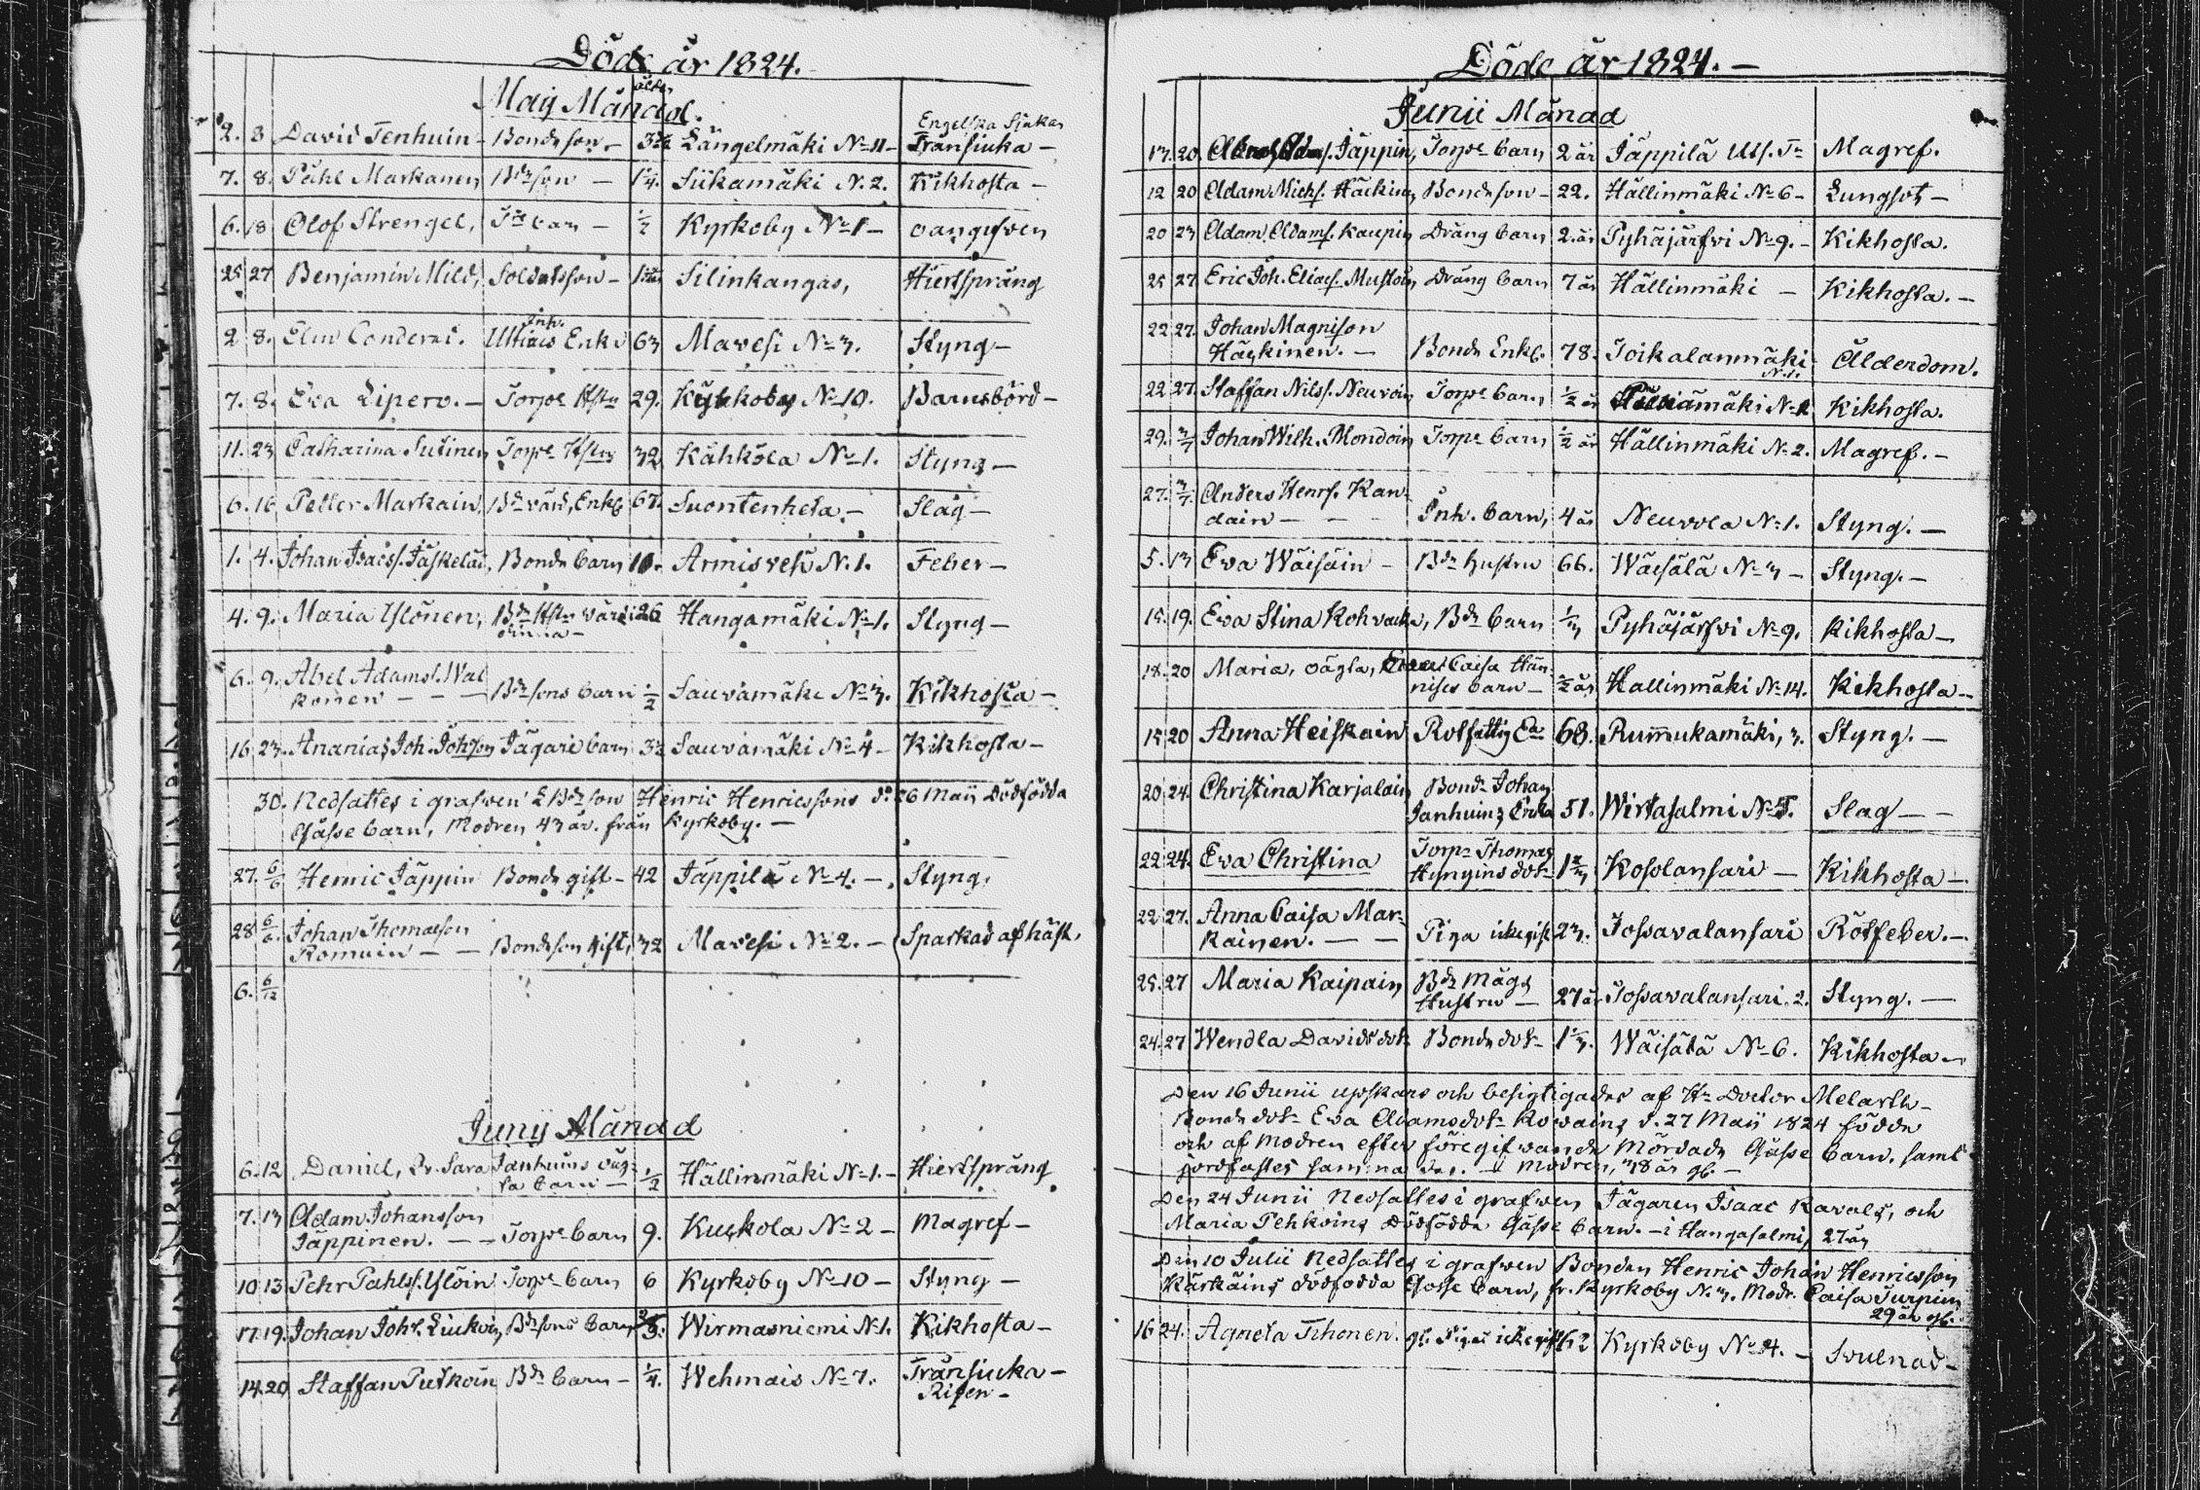 Döde år 1824.
Maij Månad.
ålder
2. 3 David Tenhuin - Bonde son - Längelmäki No 11 - Engelska Sjukan Tränsiuka -
7. 8. Påhl Markanen Bde son - 1/4. Siikamäki N. 2. Kikhosta -
6. 18 Olof Strengel, barn - 1/2 Kyrkoby No 1 - oangifven
25 27 Benjamin Mild, Soldatsson - Silinkangas, Hiertsprång
2 8. Elin Conderus. Enka 63 Mavesi No 3. Styng -
7. 8. Eva Liperv. - Torpe Hstu 29. Kyrkoby No 10. Barnsbörd -
11. 23 Catharina Sutinen Torpe Hstru 32 Kähkölä No 1. Styng -
6. 16 Petter Markain, Enkl 67. Suontenhela. - Slag -
1. 4. Johan Isacs. Jäskeläi, Bonde barn 10. Armisvesi N. 1. Feber -
4. 9. Maria Ylönen, Bde Hstr 26 Hangamäki No 1. Styng -
6. 9. Abel Adams. Wal-
konen - - - Bde sons barn 1/2 Sauvamäki No 3. Kikhosta -
16 23. Ananias Joh. Johsson Jägari barn Sauvamäki No 4 - Kikhosta -
30. Nedsattes i grafven Bde son Henric Henricssons d. 26 Maii Dödfödda
Gåsse barn, Modren 43 år. från Kyrkoby. -
27. 6/6 Henric Jäppin Bonde gift - 42 Jäppilä No 4. - Styng.
28 6/6. Johan Thomasson
Romain - - Bonde son gift, 32 Mavesi No 2. - Sparkad af häst.
6. 6/12
Junij Månad
6. 12 Daniel, Sara Janhuins oäg-
ta barn - 1/2 Hällinmäki No 1. - Hiertsprång
7. 13 Adam Johansson
Jäppinen. - - Torpe barn 9. Kuckola No 2 - Magref -
10 13 Pehr Påhls. Ylöin Torpe barn 6 Kyrkoby No 10 - Styng -
17 19. Johan Joh. Liukoin Bde sons barn Wirmasniemi N. 1. Kikhosta -
14. 20 Staffan Putkoin Bde barn - 1/4. Wehmais No 7. Tränsiucka -
Risen -
Döde år 1824. -
Junii Månad
17. 20. Jäppin, Torpe barn 2 år Jäppilä Magref.
12 20 Adam Michs. Häckin, Bonde son - 22. Hällinmäki No 6 - Lungsot -
20 23 Adam Adams. Kaupin Dräng barn 2. år Pyhäjärfvi No 9. - Kikhosta.
25 27 Eric Joh. Eliaes. Mustoin Dräng barn 7 år Hällinmäki - Kikhosta. -
22 27. Johan Magnison
Häykinen. - Bonde Enkl. 78. Toikalanmäki N. 1. Ålderdom.
22 27. Staffan Nilss. Neuvoin Torpe barn 1/2 år Kikhosta.
29. 3/7 Johan Wilh. Mondoin Torpe barn 1/2 år Hällinmäki N. 2. Magref. -
27. 3/7. Anders Henrs. Kan-
dain - - - Inh. barn, 4 år Neuvola No 1. Styng. -
5. 13 Eva Wäisäin - Bde hustru 66. Wäisälä No 3 - Styng. -
15. 19. Eva Stina Kohvacka, Bde barn 1/3 Pyhäjärfvi No 9. Kikhosta -
18. 20 Maria, oägta, Caisa Hän-
nises barn - 1/2 år Hallinmäki No 14. Kikhosta -
15 20 Anna Heiskain Rotfattig Ea 68. Rummukamäki, 3. Styng. -
20 24. Christina Karjalain Bonde Johan
Janhuins Enka 51. Wirtasalmi No 5. Slag - -
22 24. Eva Christina Torpe Thomas
dotr Kosolansari - Kikhosta -
22 27. Anna Caisa Mar-
kainen. - - Piga icke gift 23. Tossavalansari Rötfeber. -
25. 27 Maria Kaipain Bde Mågs
Hustru - 27 år Tossavalansari. 2. Styng. -
24. 27 Wendla Davidsdotr Bonde dotr 1 1/3. Wäisälä No 6. Kikhosta -
Den 16 Junii upskars och besigtigades af Hr Doctor Melarth -
Bonde dotr Eva Adamsdotr Rovains d. 27 Maii 1824 födde
och af Modren efter föregifvande Mördade Gåsse barn. samt
jordfästes samma dag. - Modren, 18 år gl. -
Den 24 Junii Nedsattes i grafven Jägaren Isaac Kavals, och
Maria Pehkoins Dödfödda Gåsse barn. - i Hangasalmi, 27 år
Den 10 Julii Nedsattes i grafven Bonden Henric Johan Henricsson
Kärkäins dödfodda Gosse barn, fr. Kyrkoby N. 3. Modr. Caisa Turpein
29 år gl.
16 24. Agneta Tihonen. gl. Piga icke gift 62 Kyrkoby No 4. - Svulnad -